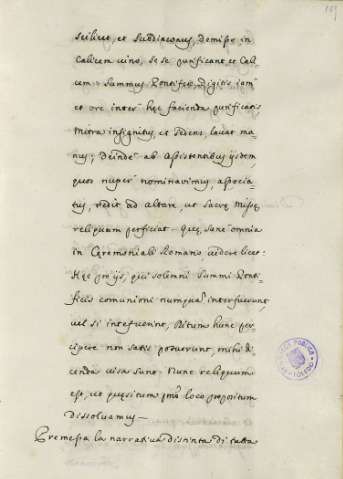 189
scilicet, et Subdiaconus, demisso in
Calicem vino, se se purificant, et Cali-
cem: Summus Pontifex, Digitis iam
et ore inter hęc facienda purificatis
Mitra insignitus, et sedens, lavat ma-
nus; Deinde ab Assistentibus ijsdem
quos nuper nominavimus, associa-
tus, redit ad Altare, ut Sacrę Missę
reliquum perficiat. Quę sane omnia
in Cęremoniali Romano, videre licet.
Hęc pro ijs, qui solemni Summi Ponti-
ficis comunioni numquā interfuerunt,
vel si intefuerint, Ritum hunc per-
cipere non satis potuerunt, mihi di-
cenda visa sunt. Nunc reliquum
est, ut quęsitum primo loco propositum
dissolvamus—
Premessa la narrativa distinta di tutta
BIBLIOTECA PUBLICA
TOLEDO